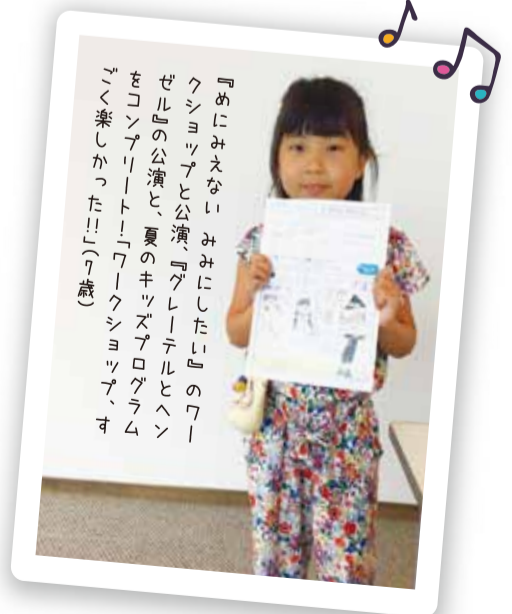 『めにみえない みみにしたい』のワー
クショップと公演、『グレーテルとヘン
ゼル』の公演と、夏のキッズプログラム
をコンプリート!「ワークショップ、す
ごく楽しかった!!」(7歳)